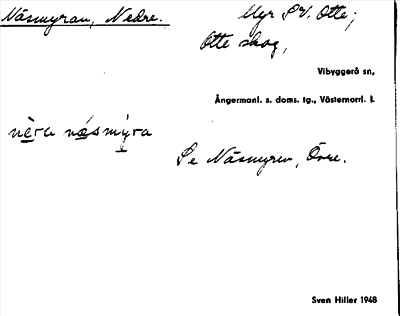 Näsmyran, Nedre. Myr SV. Otte;
Otte skog,
Vibyggerå sn,
Ångermanl. s. doms. tg., Västernorrl. l.
nèra næsmýra
Se Näsmyren, Övre.
Sven Hiller 1948